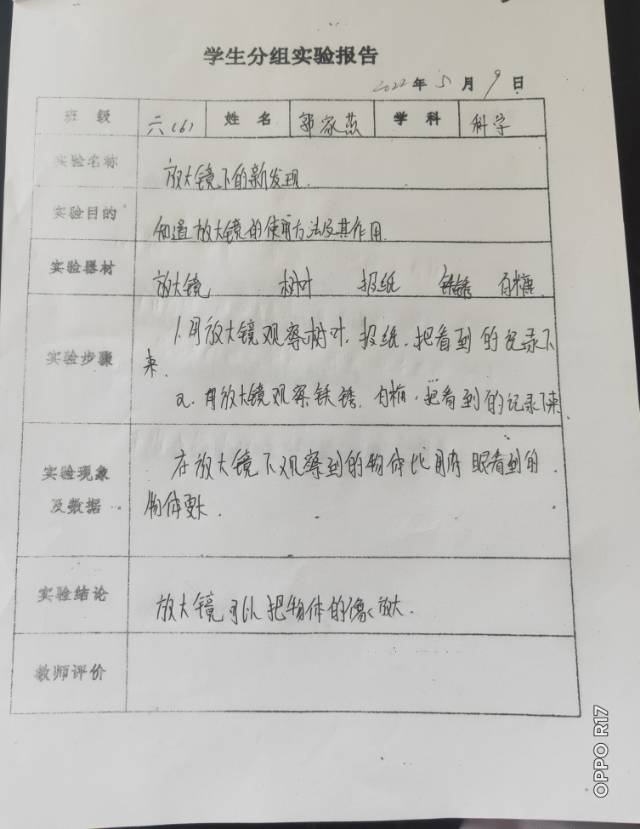 学生分组实验报告
2022年5月9日
班级 六(6) 姓名 郭家燕 学科 科学
实验名称 放大镜下的新发现
实验目的 知道放大镜的使用方法及其作用
实验器材 放大镜 树叶 报纸 铁锈
实验步骤 1.用放大镜观察树叶、报纸,把看到的记录下
来.
2.用放大镜观察铁锈、 把看到的记录下来
实验现象
及数据
在放大镜下观察到的物体比用肉眼看到的
物体要大.
实验结论 放大镜可以把物体的像放大.
教师评价
OPPO R17